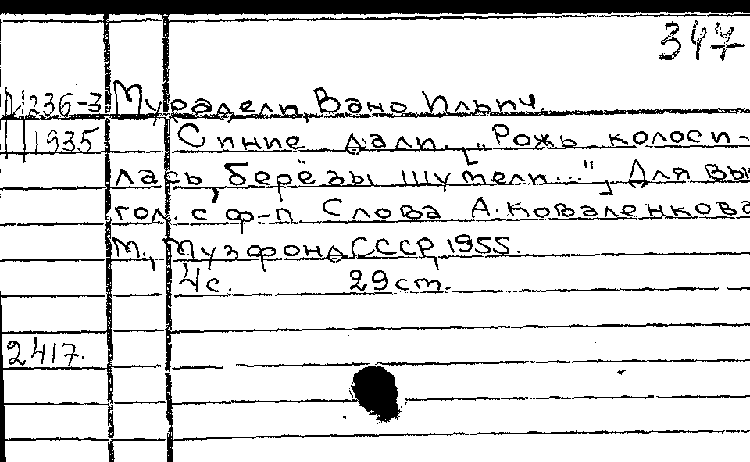 347
236-3 Мурадели, Вано Ильич.
1935 Синие дали. ["Рожь колоси-
лась, берёзы шумели..."]. Для вы
гол. с ф-п. Слова А. Коваленкова
М., Музфонд СССР, 1955.
4с. 29 см.
2417.